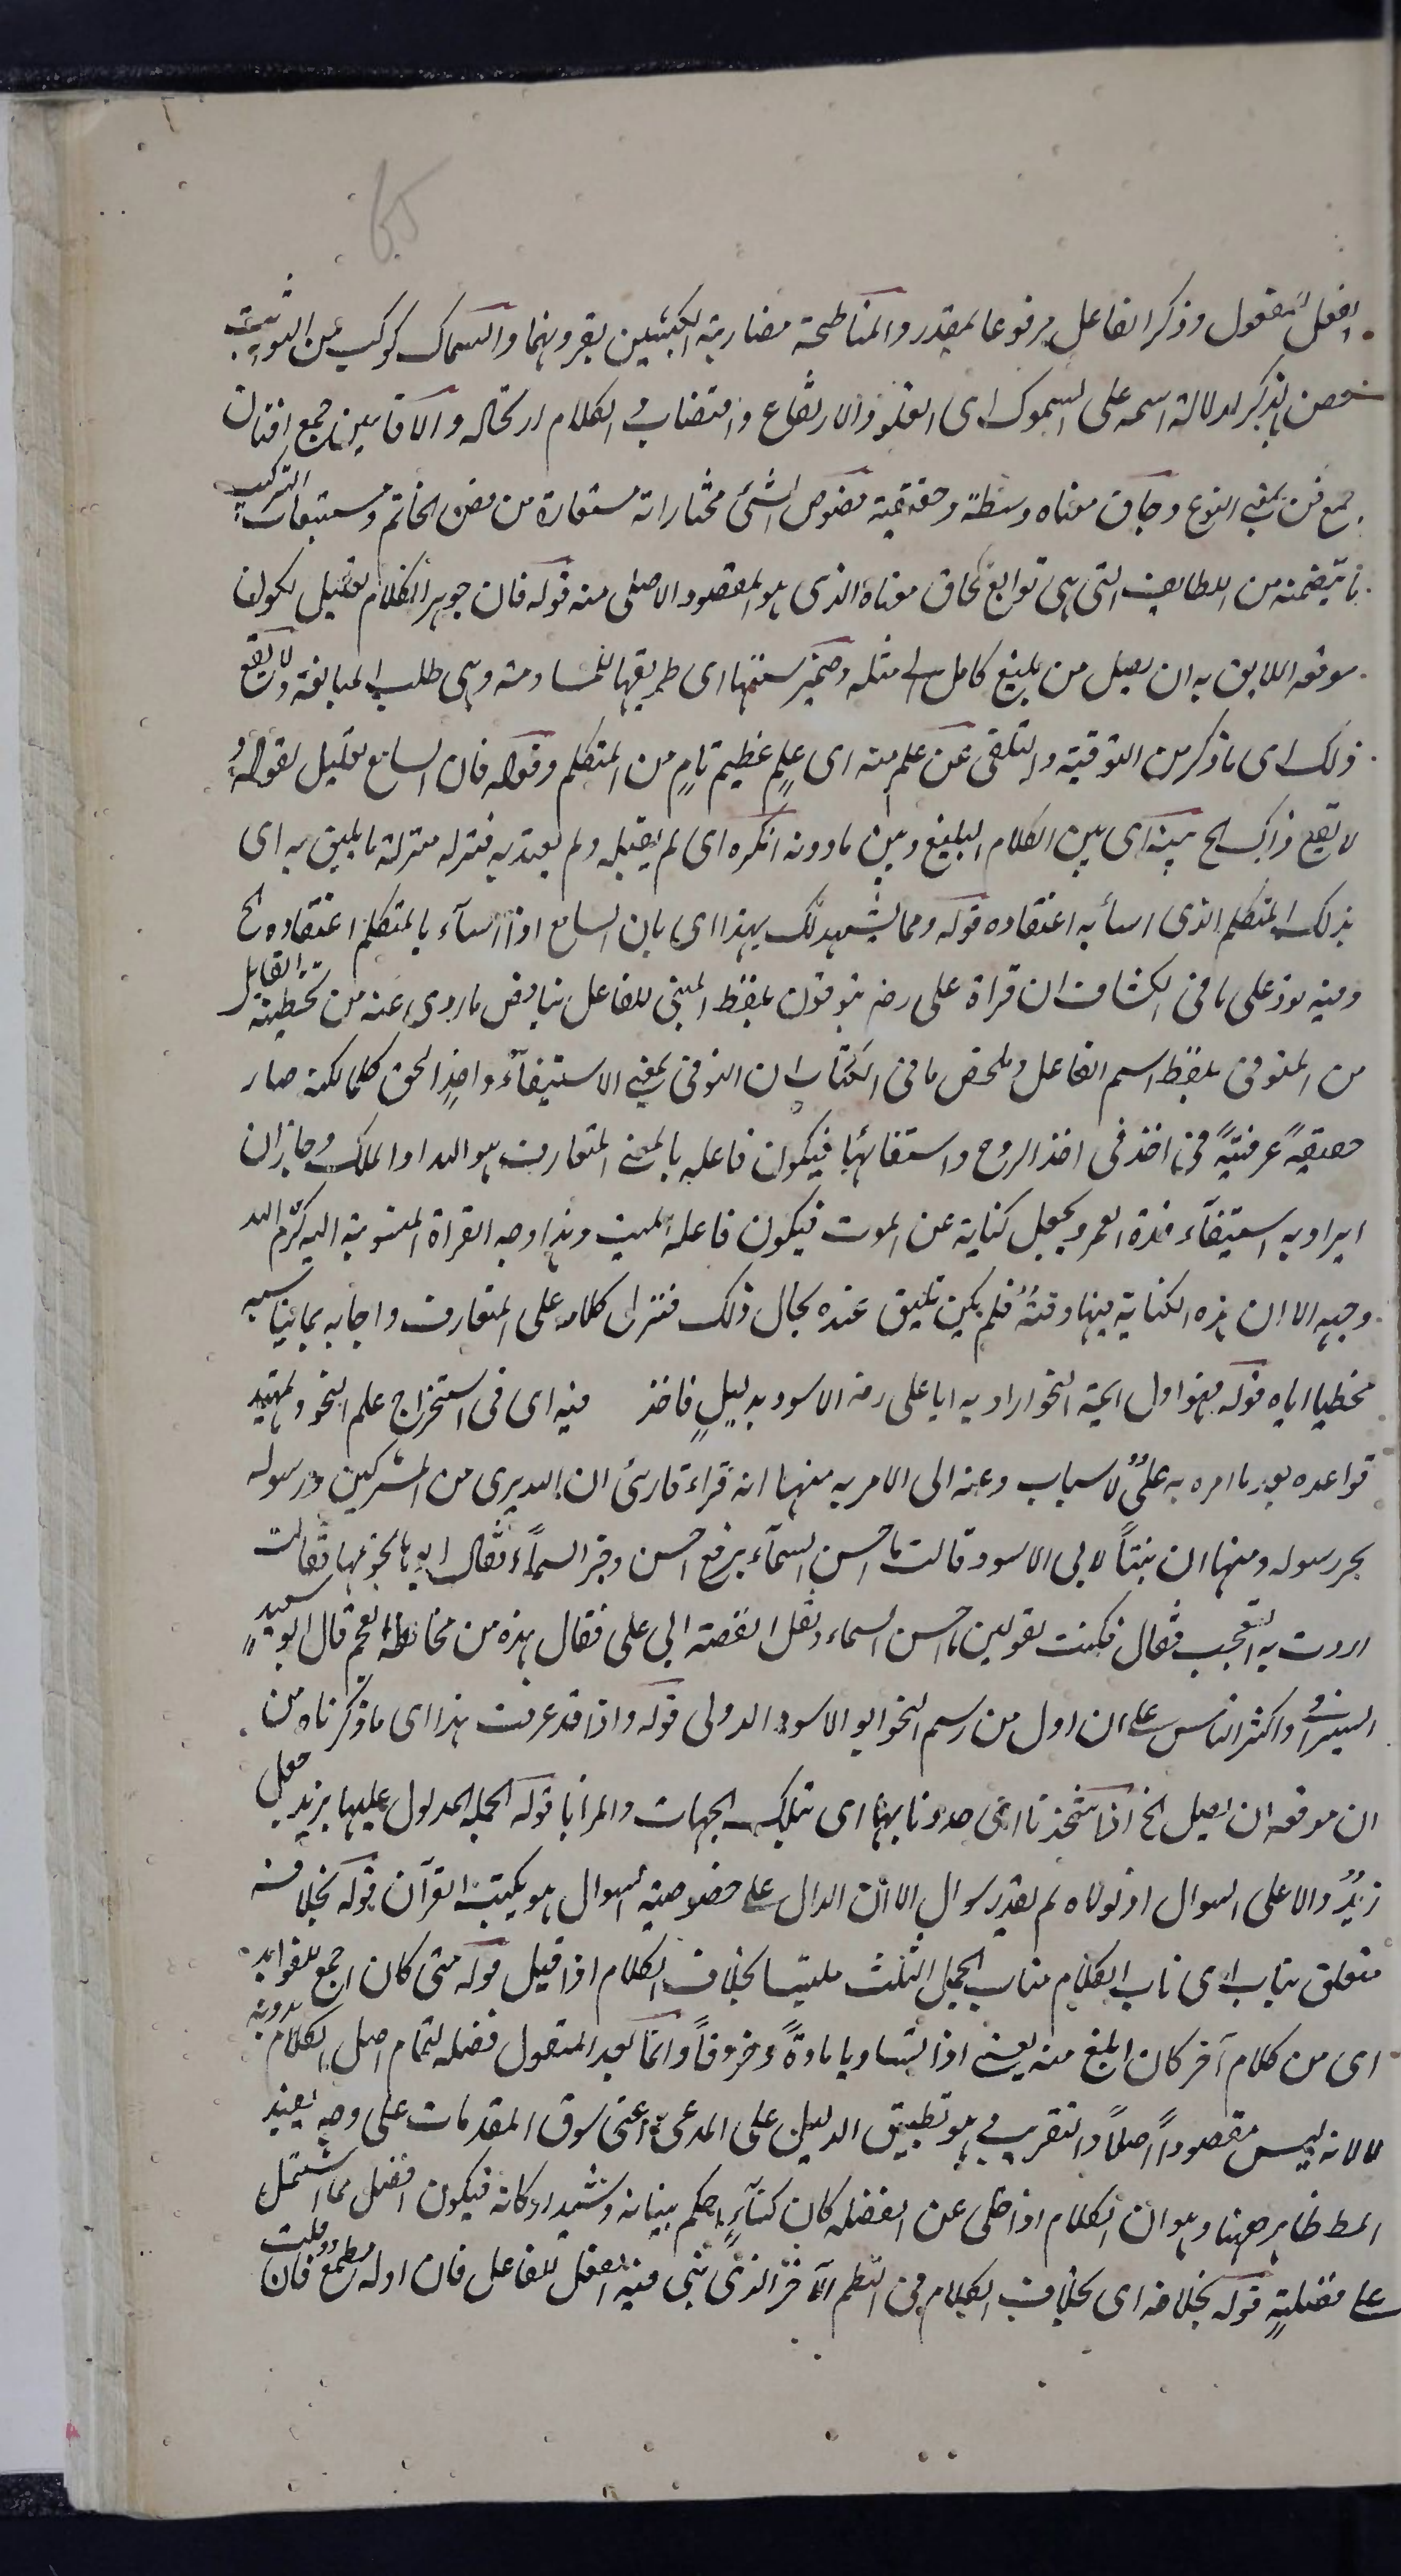 65
الفعل للمفعول وذكر الفاعل مرفوعا لمقدر والمناطحة مضاربة الكبشين بقرونهما والسماك كوكب من الثوابت
خص بالذكر لدلالة اسمه على السموك اى العلو والارتفاع واقتضاب الكلام ارتجاله والافانين جمع افنان
جمع فن بمعنى النوع وحاق معناه وسطه وحقيقته فصوص الشئ مختاراته مستعارة من فص الخاتم ومستتبعات التركيب
ما يتضمنه من اللطايف التى هى توابع لحاق معناه الذى هو المقصود الاصلى منه قوله فان جوهر الكلام تعليل لكون
موقعه اللايق به ان يصل من بليغ كامل الى مثله وضمير سنتها اى طريقها للمساومة وهى طلب المبايعة ولا يقع
ذلك اى ما ذكر من التوقية والتلقى عن علم منه اى علم عظيم تام من المتكلم وقوله فان السامع تعليل لقوله و
لا يقع ذلك الخ بينه اى بين الكلام البليغ وبين ما دونه انكره اى لم يقبله ولم يعتد به فنزله منزلة ما يليق به اى
بذلك المتكلم الذى اساء به اعتقاده قوله ومما يشهد لك بهذا اى بان السامع اذا اساء بالمتكلم اعتقاده الخ
وفيه يرد على ما فى الكشاف ان قراة على رضه يتوفون بلفظ المبنى للفاعل يناقض ما روى عنه من تخطيته القايل
من المتوفى بلفظ اسم الفاعل وملخص ما فى الكتاب ان التوفى بمعنى الاستيفاء واخذ الحق كملا لكنه صار
حقيقة عرفية فى اخذ الروح واستيفائها فيكون فاعله بالمعنى المتعارف هو الله او الملك وجاز ان
يراد به استيفاء مدة العمر ويجعل كناية عن الموت فيكون فاعله الميت وهذا وجه القراة المنسوبة اليه كرم الله
وجهه الا ان هذه الكناية فيها دقة فلم يكن تليق عنده بحال ذلك فنزل كلامه على المتعارف واجابه بما يناسبه
مخطيا اياه قوله فهو اول ايمة النحو اراد به ابا على رضه الاسود بدليل فاخذ فيه اى فى استخراج علم النحو وتمهيد
قواعده بعد ما امره به على لاسباب دعته الى الامر به منها انه قراء قارئ ان الله برى من المشركين ورسوله
بجر رسوله ومنها ان بنتا لابى الاسود قالت ما احسن السماء برفع احسن وجر السماء فقال ابوها نجومها فقالت
اردت به التعجب فقال فكنت تقولين ما احسن السماء ونقل القصة الى على فقال هذه من مخالطة العجم قال ابو سعيد
السيرافى واكثر الناس على ان اول من رسم النحو ابو الاسود الدولى قوله واذا قد عرفت هذا اى ما ذكرناه من
ان موقعه ان يصل الخ بتلك الجهات والمزايا قوله الجملة المدلول عليها بزيد جعل
زيد دالا على السوال اذ لولاه لم يقدر سوال الا ان الدال على خصوصية السوال هو بكتب القرآن قوله بخلافه
متعلق بناب اى ناب الكلام مناب الجمل الثلث ملتبسا بخلاف الكلام اذا قيل قوله متى كان اجمع للفوايد
اى من كلام آخر كان ابلغ منه يعنى اذا تساويا مادة وحروفا وانما يعد المفعول فضلة لتمام اصل الكلام بدونه
لا لانه ليس مقصودا اصلا والتقريب هو تطبيق الدليل على المدعى اعنى سوق المقدمات على وجه يفيد
المط ظاهر ههنا وهو ان الكلام اذا خلى عن الفضلة كان كبناء احكم بنيانه وشيد اركانه فيكون افضل مما اشتمل
على فضلية قوله بخلافه اى بخلاف الكلام فى النظم الآخر الذى بنى فيه الفعل للفاعل فان اوله مطمع فان